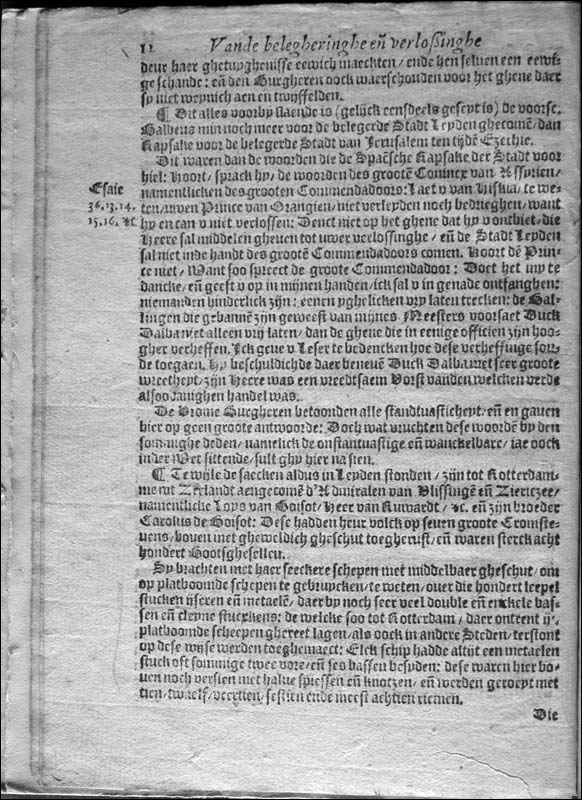 12 Vande belegheringhe eñ verlossinghe
deur haer ghetuyghenisse eewich maeckten / ende hen selven een eewi-
ge schande: eñ den Burgheren oock waerschouden voor het ghene daer
sy niet weynich aen en twyffelden.
¶ Dit alles voorby staende is (gelijck eensdeels geseyt is) de voorsc.
Baldeus min noch meer voor de belegerde Stadt Leyden ghecomē / dan
Rapsake voor de belegerde Stadt van Jerusalem ten tydē Ezechie.
Dit waren dan de woorden die de Spaēsche Rapsake der Stadt voor
hiel: Hoort / sprack hy / de woorden des grootē Conincx van Assyrien /
Esaie
namentlicken des grooten Commendadoors: Laet v van Hiskia / te we-
36.13.14.
ten / uwen Prince van Orangien / niet verleyden noch bedrieghen / want
15.16. &c.
hy en can v niet verlossen: Denct niet op het ghene dat hy v ontbiet / die
Heere sal middelen gheven tot uwer verlossinghe / eñ de Stadt Leyden
sal niet inde handt des grootē Commendadoors comen. Hoort dē Prin-
ce niet / Want soo spreect de groote Commendadoor: Doet het my te
dancke / eñ geeft v op in mijnen handen / ick sal v in genade ontfanghen:
niemanden hinderlick zijn: eenen yghelicken vry laten trecken: de Bal-
lingen die gebannē zijn geweest van mijnes Meesters voorsaet Duck
Dalba niet alleen vrij laten / dan de ghene die in eenige officien zijn hoo-
gher verheffen. Ick geve v Leser te bedencken hoe dese verheffinge sou-
de toegaen. Hy beschuldichde daer benevē Duck Dalba met seer groote
wreetheyt / zijn Heere was een vreedtsaem Vorst vanden welcken verde
alsoodanighen handel was.
De Vrome Burgheren betoonden alle standtvasticheyt / eñ en gaven
hier op geen groote antwoorde: Doch wat vruchten dese woordē by den
sommighe deden / namelick de onstantvastige eñ wanckelbare / iae oock
in der Wet sittende / sult ghy hier na sien.
¶ Terwijle de saecken aldus in Leyden stonden / zijn tot Rotterdam-
me wt Zeelandt aengecomē d'Admiralen van Vlissingē eñ Zierickzee /
namentlicke Loys van Boisot / Heer van Ruwardt / &c. eñ zijn broeder
Carolus de Boisot: Dese hadden heur volck op seven groote Cromste-
vens / boven met gheweldich gheschut toegherust / eñ waren sterck acht
hondert Bootsghesellen.
Sy brachten met haer seeckere schepen met middelbaer gheschut / om
op platboomde schepen te gebruycken / te weten / over die hondert leepel
stucken ijseren eñ metaelē / daer by noch seer veel double eñ enckele bas-
sen eñ cleyne stuckens: de welcke soo tot Rotterdam / daer ontrent ijᶜ.
platboomde scheepen ghereet lagen / als oock in andere Steden / terstont
op dese wijse werden toeghemaect: Elck schip hadde altijt een metaelen
stuck oft sommige twee vore / eñ ses bassen besyden: dese waren hier bo-
ven noch versien met halve spiessen eñ knotzen / eñ werden geroeyt met
tien / twaelf / veertien / sestien ende meest achtien riemen.
Die